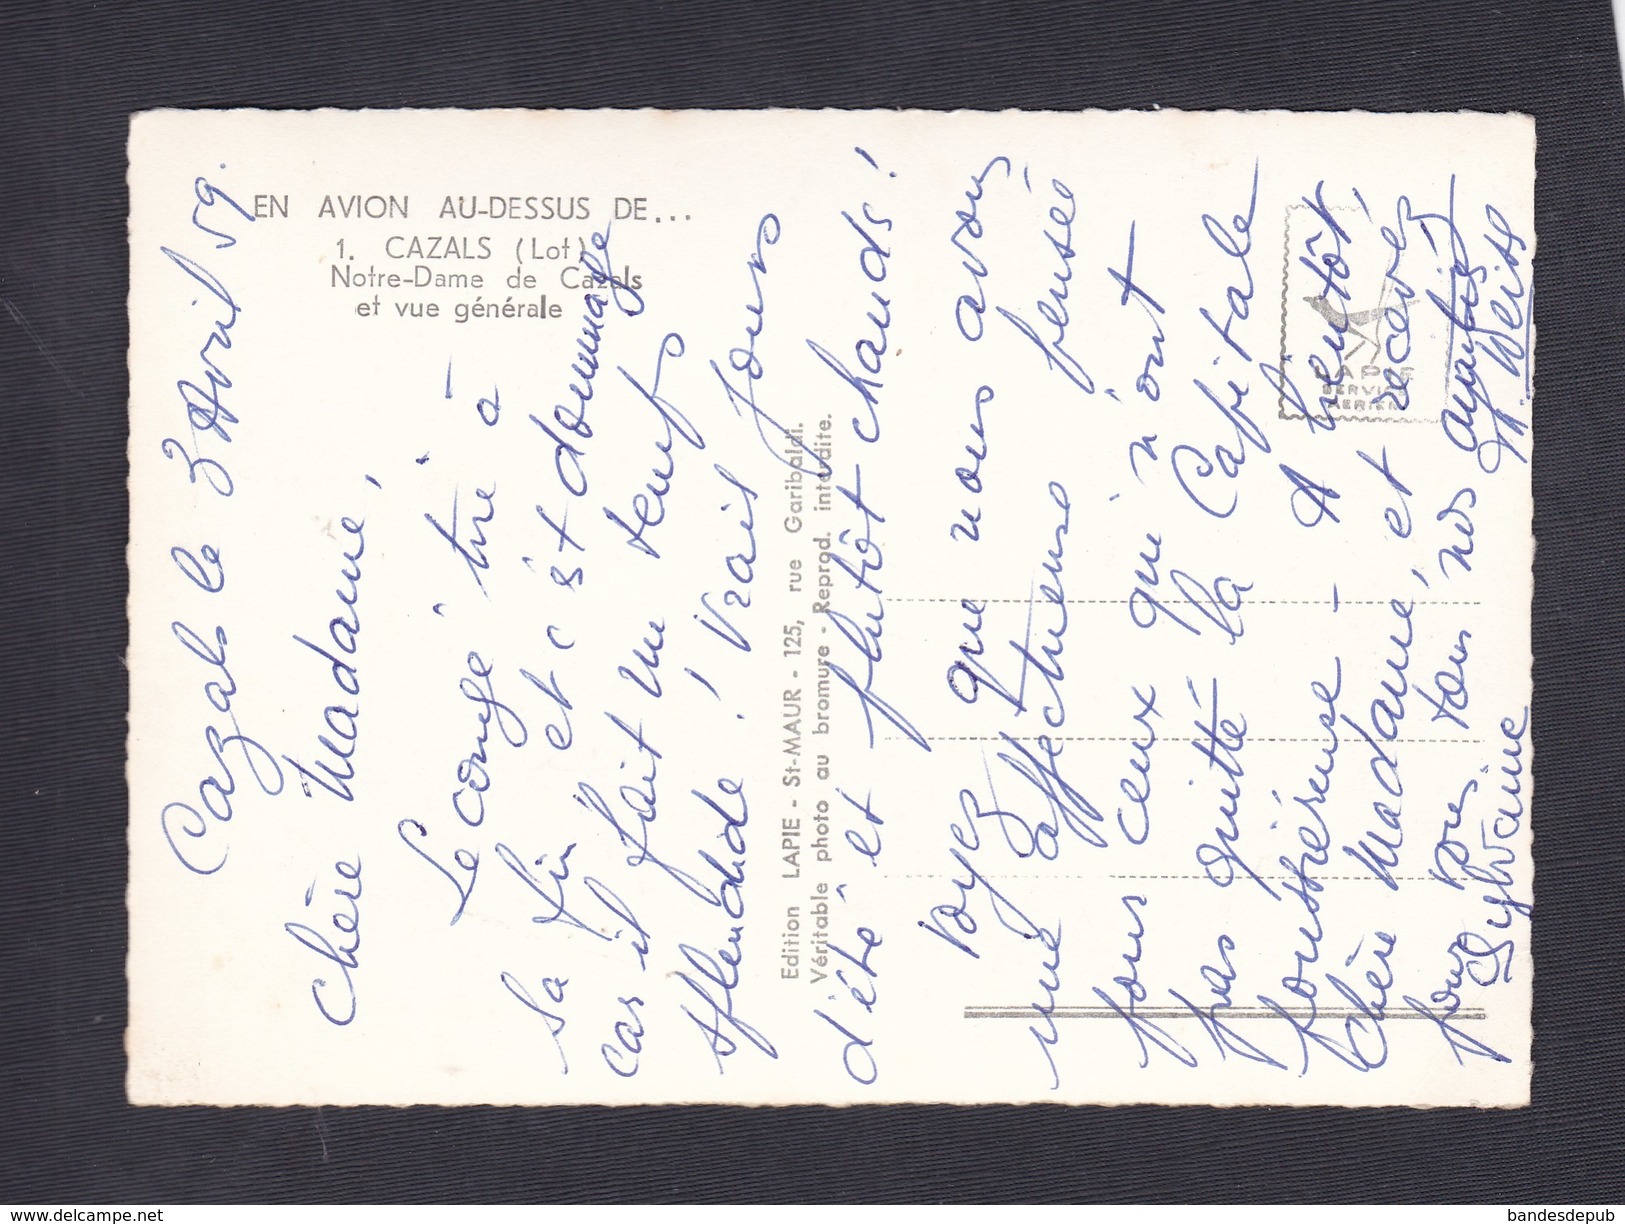 EN AVION AU-DESSUS DE...
1. CAZALS (Lot)
Notre-Dame de Cazals
et vue générale
Edition LAPIE - St-MAUR - 125, rue Garibaldi.
Véritable photo au bromure - Reprod. interdite.
LAPIE
SERVICE
AERIEN
Cazals le 3 Avril 59.
Chère Madame,
Le congé tire à
sa fin et c'est dommage
car il fait un temps
splendide! Vrais jours
d'été et plutôt chauds!
Voyez que nous avons
une affectueuse pensée
pour ceux qui n'ont
pas quitté la Capitale
poussiéreuse - A bientôt,
chère Madame, et recevez
pour vous tous nos amitiés
Sylvaine
Weiss
www.delcampe.net
bandesdepub